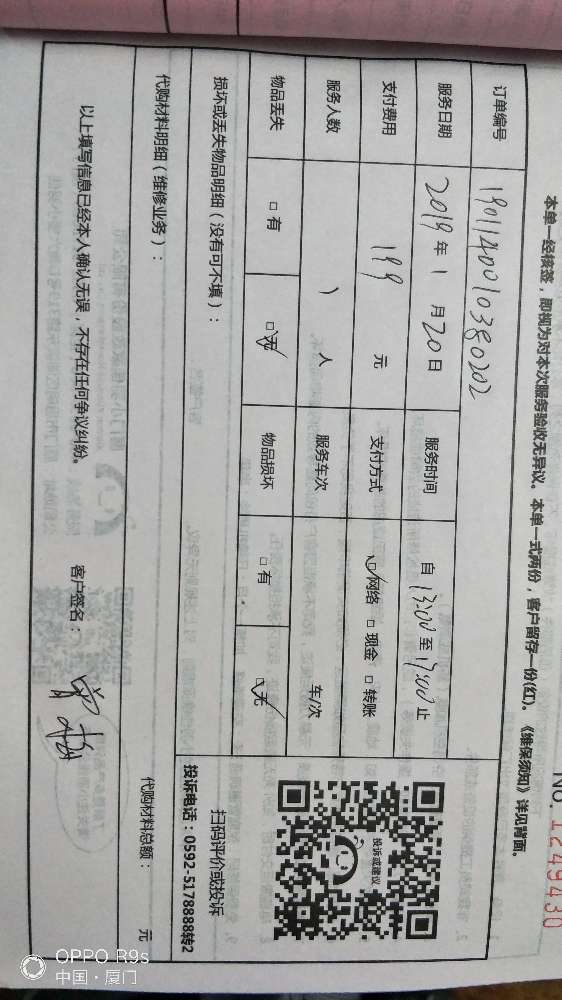 No. 1249430
本单一经核签，即视为对本次服务验收无异议。本单一式两份，客户留存一份(红)。《维保须知》详见背面。
订单编号 1901140010380202
服务日期 2019年1月20日 服务时间 自13:00至17:00止
支付费用 199 元 支付方式 ☑网络 □现金 □转账
服务人数 1 人 服务车次 车/次
物品丢失 □有 ☑无 物品损坏 □有 ☑无
投诉或建议
扫码评价或投诉
投诉电话：0592-5178888转2
损坏或丢失物品明细（没有可不填）：
代购材料明细（维修业务）：
代购材料总额： 元
以上填写信息已经本人确认无误，不存在任何争议纠纷。 客户签名：
OPPO R9s
中国·厦门